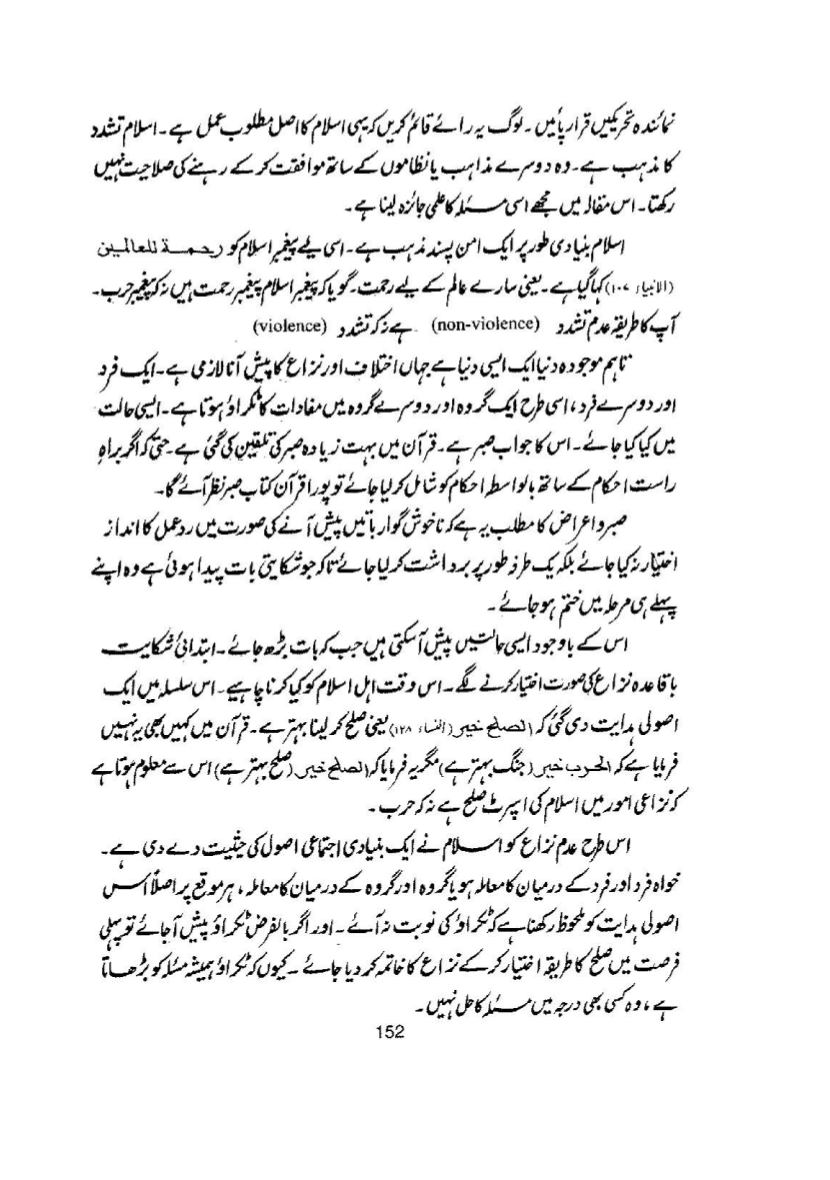 نمائندہ تحریکیں قرار پائیں ۔ لوگ یہ رائے قائم کریں کہ یہی اسلام کا اصل مطلوب عمل ہے ۔ اسلام تشدد
کا مذہب ہے ۔ وہ دوسرے مذاہب یا نظاموں کے ساتھ موافقت کر کے رہنے کی صلاحیت نہیں
رکھتا۔ اس مقالہ میں مجھے اسی مسئلہ کا علمی جائزہ لینا ہے ۔
اسلام بنیادی طور پر ایک امن پسند مذہب ہے ۔ اسی لیے پیغمبر اسلام کو رحمة للعالمین
(الانبیاء ۱۰۷) کہا گیا ہے ۔ یعنی سارے عالم کے لیے رحمت ۔ گویا کہ پیغمبر اسلام پیغمبر رحمت ہیں نہ کہ پیغمبر حرب ۔
آپ کا طریقہ عدم تشدد (non-violence) ہے نہ کہ تشدد (violence)
تاہم موجودہ دنیا ایک ایسی دنیا ہے جہاں اختلاف اور نزاع کا پیش آنا لازمی ہے ۔ ایک فرد
اور دوسرے فرد ، اسی طرح ایک گروہ اور دوسرے گروہ میں مفادات کا ٹکراؤ ہوتا ہے ۔ ایسی حالت
میں کیا کیا جائے ۔ اس کا جواب صبر ہے ۔ قرآن میں بہت زیادہ صبر کی تلقین کی گئی ہے ۔ حتی کہ اگر براہِ
راست احکام کے ساتھ بالواسطہ احکام کو شامل کر لیا جائے تو پورا قرآن کتاب صبر نظر آئے گا۔
صبر و اعراض کا مطلب یہ ہے کہ ناخوش گوار باتیں پیش آنے کی صورت میں رد عمل کا انداز
اختیار نہ کیا جائے بلکہ یک طرفہ طور پر برداشت کر لیا جائے تاکہ جو شکایتی بات پیدا ہوئی ہے وہ اپنے
پہلے ہی مرحلہ میں ختم ہو جائے ۔
اس کے باوجود ایسی حالتیں پیش آسکتی ہیں جب کہ بات بڑھ جائے ۔ ابتدائی شکایت
باقاعدہ نزاع کی صورت اختیار کرنے لگے ۔ اس وقت اہل اسلام کو کیا کرنا چاہیے ۔ اس سلسلہ میں ایک
اصولی ہدایت دی گئی کہ الصلح خیر (النساء ۱۲۸) یعنی صلح کر لینا بہتر ہے ۔ قرآن میں کہیں بھی یہ نہیں
فرمایا ہے کہ الحرب خیر (جنگ بہتر ہے) مگر یہ فرمایا کہ الصلح خیر (صلح بہتر ہے) اس سے معلوم ہوتا ہے
کہ نزاعی امور میں اسلام کی اسپرٹ صلح ہے نہ کہ حرب ۔
اس طرح عدم نزاع کو اسلام نے ایک بنیادی اجتماعی اصول کی حیثیت دے دی ہے ۔
خواہ فرد اور فرد کے درمیان کا معاملہ ہو یا گروہ اور گروہ کے درمیان کا معاملہ ، ہر موقع پر اصلاً اس
اصولی ہدایت کو ملحوظ رکھنا ہے کہ ٹکراؤ کی نوبت نہ آئے ۔ اور اگر بالفرض ٹکراؤ پیش آجائے تو پہلی
فرصت میں صلح کا طریقہ اختیار کر کے نزاع کا خاتمہ کر دیا جائے ۔ کیوں کہ ٹکراؤ ہمیشہ مسئلہ کو بڑھاتا
ہے ، وہ کسی بھی درجہ میں مسئلہ کا حل نہیں ۔
152